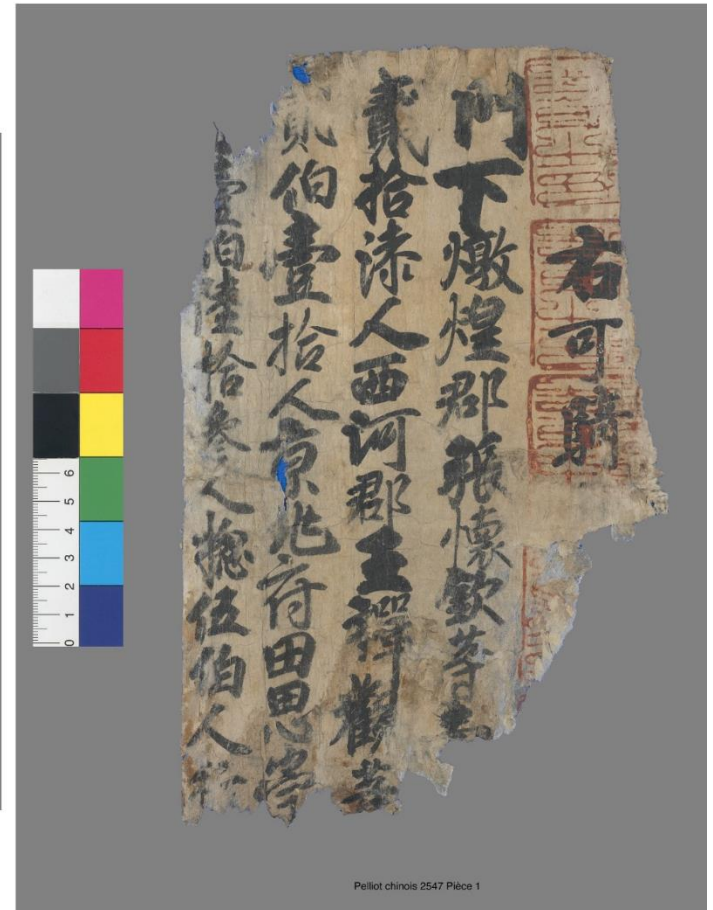 右可騎
門下燉煌郡張懷欽等
貳拾漆人西河郡王禪觀等
貳伯壹拾人京兆府田思崇
壹伯陸拾叁人摠伍伯人
6 5 4 3 2 1 0
Pelliot chinois 2547 Pièce 1